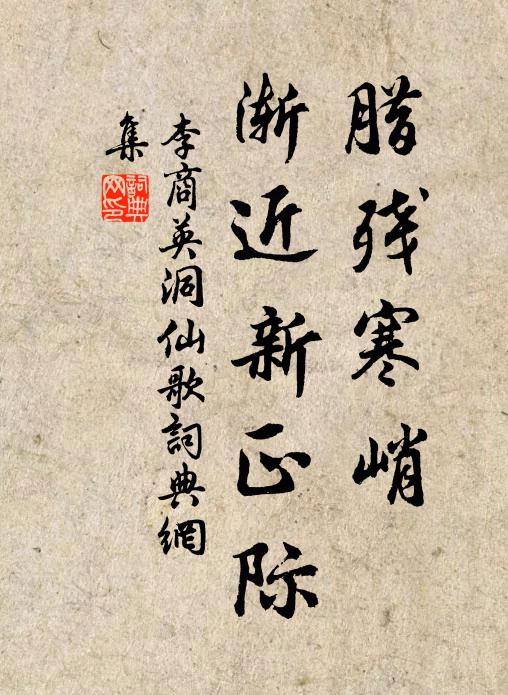 腊残寒峭
渐近新正际
李商英洞仙歌詞典網
集
詞典
网印